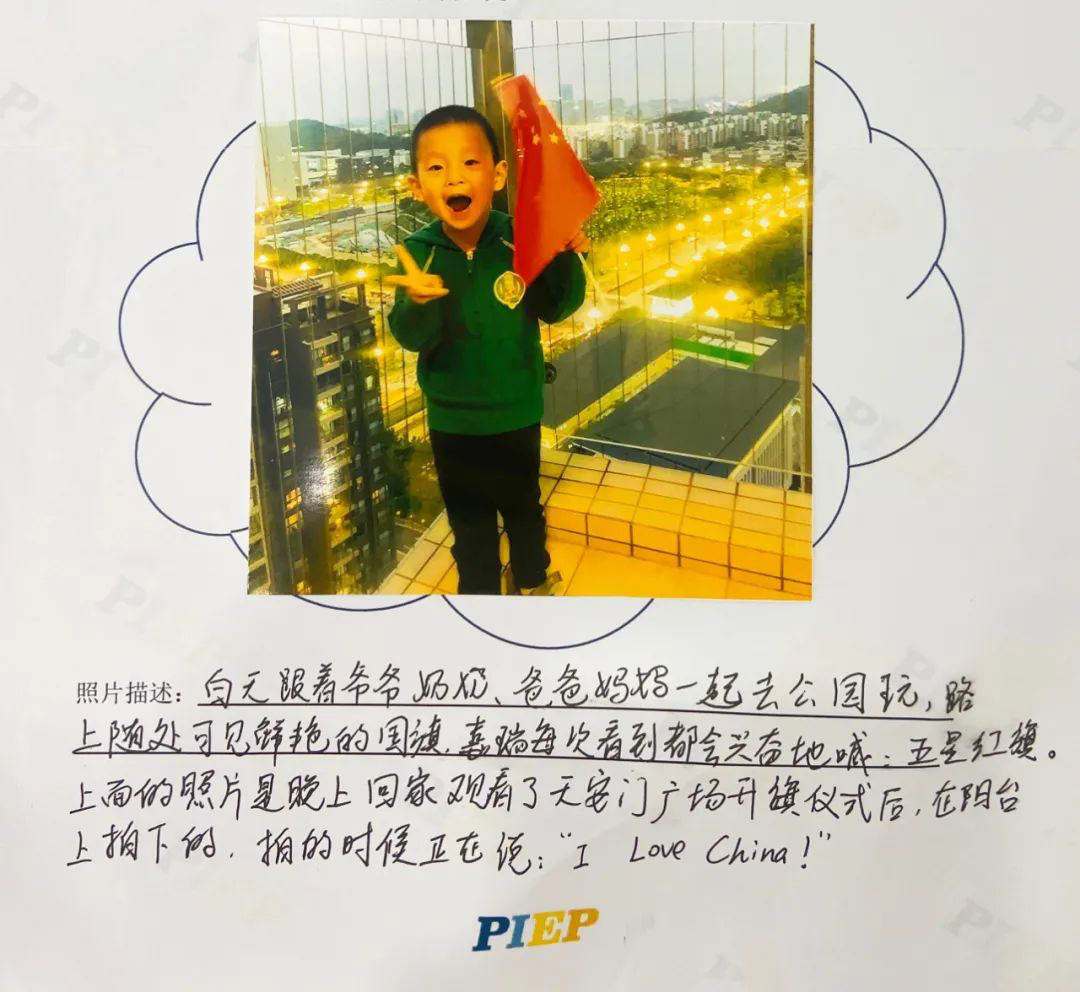 照片描述：白天跟着爷爷奶奶、爸爸妈妈一起去公园玩，路
上随处可见鲜艳的国旗，嘉瑞每次看到都会兴奋地喊：五星红旗。
上面的照片是晚上回家观看了天安门广场升旗仪式后，在阳台
上拍下的，拍的时候正在说："I Love China！"
PIEP